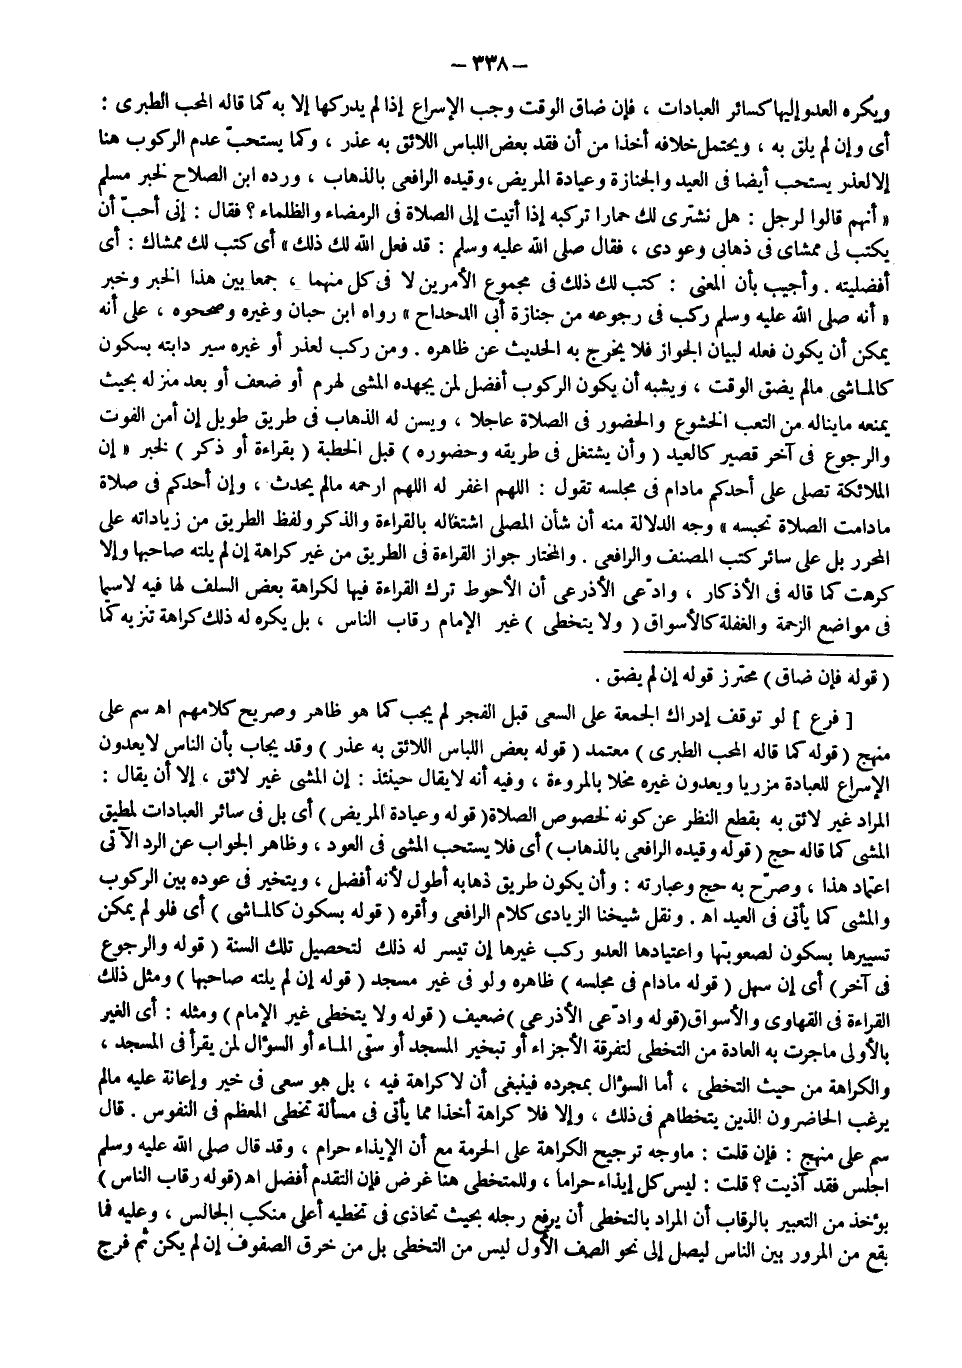 – ٣٣٨ –
ويكره العدو إليها كسائر العبادات ، فإن ضاق الوقت وجب الإسراع إذا لم يدركها إلا به كما قاله المحب الطبرى :
أى وإن لم يلق به ، ويحتمل خلافه أخذا من أن فقد بعض اللباس اللائق به عذر ، وكما يستحبّ عدم الركوب هنا
إلا لعذر يستحب أيضا فى العيد والجنازة وعيادة المريض ، وقيده الرافعى بالذهاب ، ورده ابن الصلاح لخبر مسلم
« أنهم قالوا لرجل : هل نشترى لك حمارا تركبه إذا أتيت إلى الصلاة فى الرمضاء والظلماء ؟ فقال : إنى أحبّ أن
يكتب لى ممشاى فى ذهابى وعودى ، فقال صلى الله عليه وسلم : قد فعل الله لك ذلك » أى كتب لك ممشاك : أى
أفضليته . وأجيب بأن المعنى : كتب لك ذلك فى مجموع الأمرين لا فى كل منهما ، جمعا بين هذا الخبر وخبر
« أنه صلى الله عليه وسلم ركب فى رجوعه من جنازة أبى الدحداح » رواه ابن حبان وغيره وصححوه ، على أنه
يمكن أن يكون فعله لبيان الجواز فلا يخرج به الحديث عن ظاهره . ومن ركب لعذر أو غيره سير دابته بسكون
كالماشى مالم يضق الوقت ، ويشبه أن يكون الركوب أفضل لمن يجهده المشى لهرم أو ضعف أو بعد منزله بحيث
يمنعه ماىناله من التعب الخشوع والحضور فى الصلاة عاجلا ، ويسن له الذهاب فى طريق طويل إن أمن الفوت
والرجوع فى آخر قصير كالعيد ( وأن يشتغل فى طريقه وحضوره ) قبل الخطبة ( بقراءة أو ذكر ) لخبر « إن
الملائكة تصلى على أحدكم مادام فى مجلسه تقول : اللهم اغفر له اللهم ارحمه مالم يحدث ، وإن أحدكم فى صلاة
مادامت الصلاة تحبسه » وجه الدلالة منه أن شأن المصلى اشتغاله بالقراءة والذكر ولفظ الطريق من زياداته على
المحرر بل على سائر كتب المصنف والرافعى . والمختار جواز القراءة فى الطريق من غير كراهة إن لم يلته صاحبها وإلا
كرهت كما قاله فى الأذكار ، وادّعى الأذرعى أن الأحوط ترك القراءة فيها لكراهة بعض السلف لها فيه لاسيما
فى مواضع الزحمة والغفلة كالأسواق ( ولا يتخطى ) غير الإمام رقاب الناس ، بل يكره له ذلك كراهة تنزيه كما
( قوله فإن ضاق ) محترز قوله إن لم يضق .
[ فرع ] لو توقف إدراك الجمعة على السعى قبل الفجر لم يجب كما هو ظاهر وصريح كلامهم اه سم على
منهج ( قوله كما قاله المحب الطبرى ) معتمد ( قوله بعض اللباس اللائق به عذر ) وقد يجاب بأن الناس لايعدون
الإسراع للعبادة مزريا ويعدون غيره مخلا بالمروءة ، وفيه أنه لايقال حينئذ : إن المشى غير لائق ، إلا أن يقال :
المراد غير لائق به بقطع النظر عن كونه لخصوص الصلاة ( قوله وعيادة المريض ) أى بل فى سائر العبادات لمطيق
المشى كما قاله حج ( قوله وقيده الرافعى بالذهاب ) أى فلا يستحب المشى فى العود ، وظاهر الجواب عن الرد الآتى
اعتماد هذا ، وصرّح به حج وعبارته : وأن يكون طريق ذهابه أطول لأنه أفضل ، ويتخير فى عوده بين الركوب
والمشى كما يأتى فى العيد اه . ونقل شيخنا الزيادى كلام الرافعى وأقره ( قوله بسكون كالماشى ) أى فلو لم يمكن
تسييرها بسكون لصعوبتها واعتيادها العدو ركب غيرها إن تيسر له ذلك لتحصيل تلك السنة ( قوله والرجوع
فى آخر ) أى إن سهل ( قوله مادام فى مجلسه ) ظاهره ولو فى غير مسجد ( قوله إن لم يلته صاحبها ) ومثل ذلك
القراءة فى القهاوى والأسواق ( قوله وادّعى الأذرعى ) ضعيف ( قوله ولا يتخطى غير الإمام ) ومثله : أى الغير
بالأولى ماجرت به العادة من التخطى لتفرقة الأجزاء أو تبخير المسجد أو سقى الماء أو السؤال لمن يقرأ فى المسجد ،
والكراهة من حيث التخطى ، أما السؤال بمجرده فينبغى أن لا كراهة فيه ، بل هو سعى فى خير وإعانة عليه مالم
يرغب الحاضرون الذين يتخطاهم فى ذلك ، وإلا فلا كراهة أخذا مما يأتى فى مسألة تخطى المعظم فى النفوس . قال
سم على منهج : فإن قلت : ماوجه ترجيح الكراهة على الحرمة مع أن الإيذاء حرام ، وقد قال صلى الله عليه وسلم
اجلس فقد آذيت ؟ قلت : ليس كل إيذاء حراما ، وللمتخطى هنا غرض فإن التقدم أفضل اه ( قوله رقاب الناس )
يؤخذ من التعبير بالرقاب أن المراد بالتخطى أن يرفع رجله بحيث تحاذى فى تخطيه أعلى منكب الجالس ، وعليه فما
يقع من المرور بين الناس ليصل إلى نحو الصف الأول ليس من التخطى بل من خرق الصفوف إن لم يكن ثم فرج